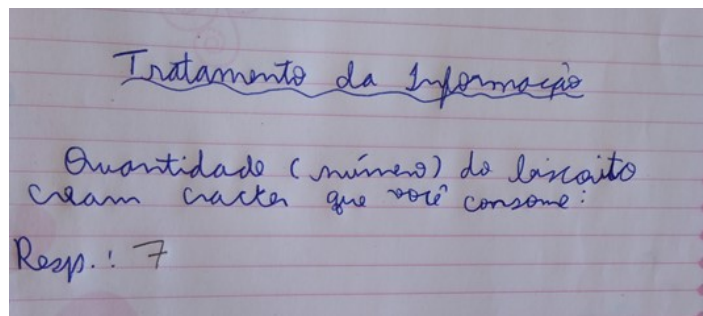 Tratamento da Informação
Quantidade (número) do biscoito
cream cracker que você consome:
Resp.: 7